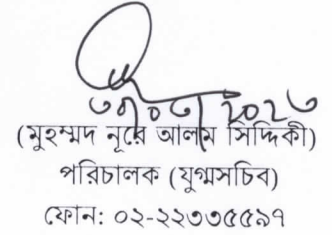 (মুহম্মদ নূরে আলম সিদ্দিকী)
পরিচালক (যুগ্মসচিব)
ফোন: ০২-২২৩৩৫৫৯৭